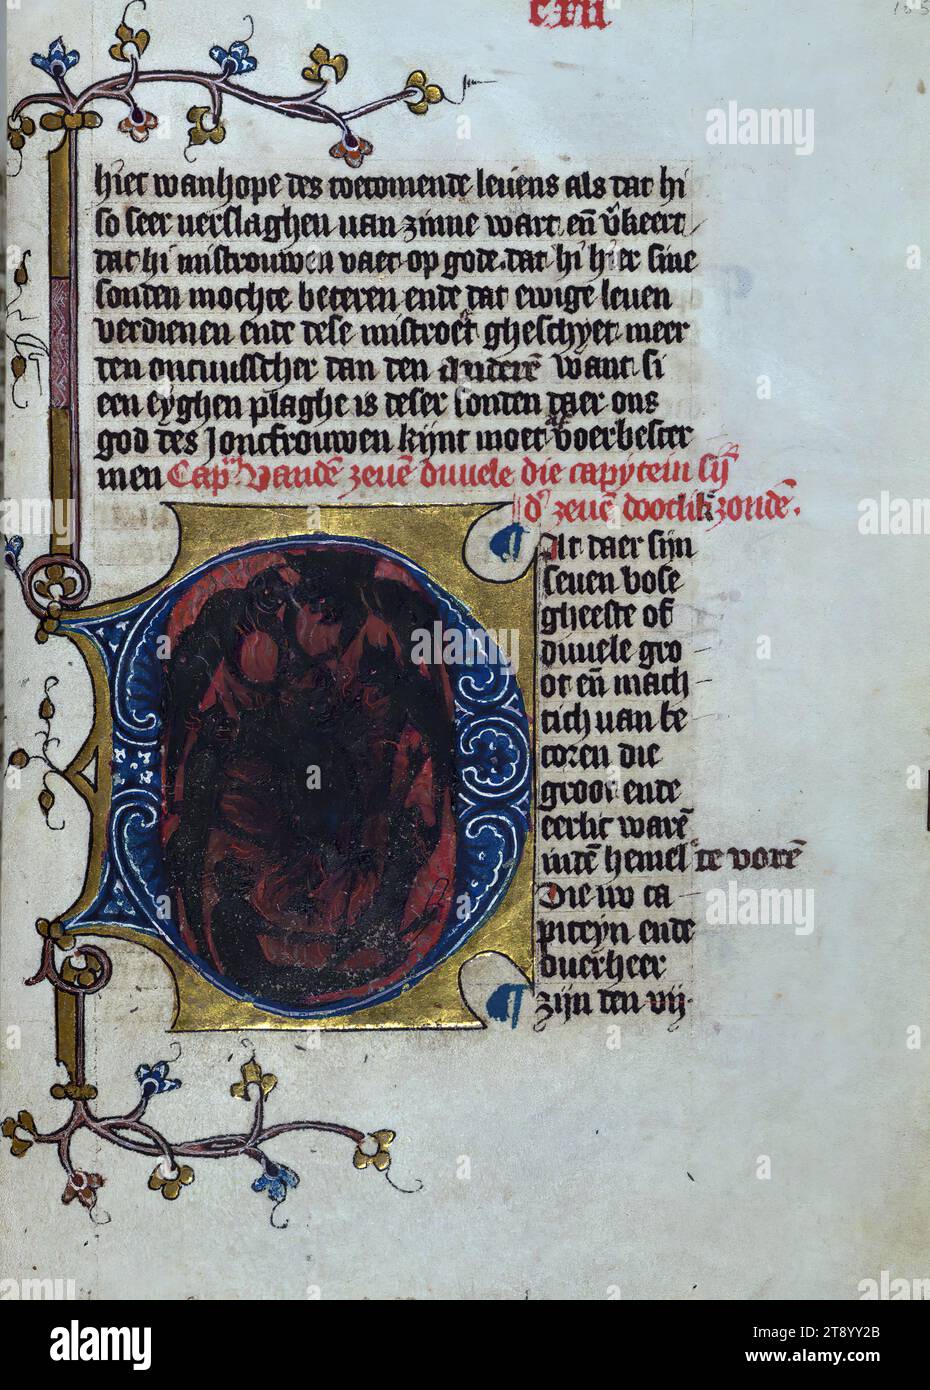 cxvii
hier wanhope des toecomende leuens als dat hi
so seer verslaghen van zinne wart. en̄ v̄keert
dat hi mistrouwen vaet op gode. dat hi hier sine
sonden mochte beteren ende dat ewige leuen
verdienen ende dese mistroest gheschyet meer
den onruusscher dan den anderē want si
een eyghen plaghe is deser sonden daer ons
god des Joncfrouwen kijnt moet af voerbescer
men Cap. Vandē zeuē duuele die capytein sij
d' zeuē dootlik zondē.
¶ At daer sijn
seuen bose
gheeste of
duuele gro
ot en̄ mach
tich van be
toren die
groot ende
eerlic warē
inden hemel te vorē
Die uw ca
piteyn ende
ouerheer
¶ zijn den vij.
alamy
a
alamy
Image ID: 2T8YY2B
www.alamy.com